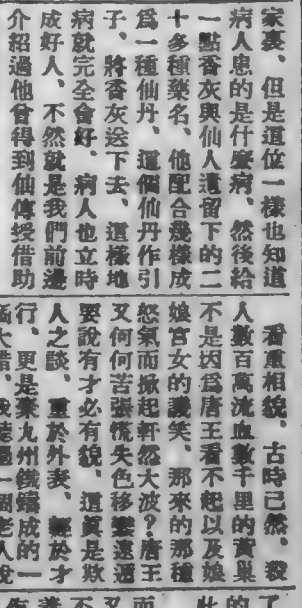 家裏、但是這位一樣也知道
病人患的是什麼病、然後給
一點香灰與仙人遺留下的二
十多種藥名、他配合幾樣成
爲一種仙丹、這個仙丹作引
子、將香灰送下去、這樣地
病就完全會好、病人也立時
成好人、不然就是我們前邊
介紹過他曾得到仙傳授借助
看重相貌、古時已然、殺
人數百萬流血數千里的黃巢
不是因爲唐王看不起以及娘
娘宮女的譏笑、那來的那種
怒氣而掀起軒然大波？唐王
又何何苦張慌失色移鑾遠遁
要說有才必有貌、這眞是欺
人之談、重於外表、輕於才
行、更是棄九州鐵鑄成的一
大錯、我聽過一個老人說